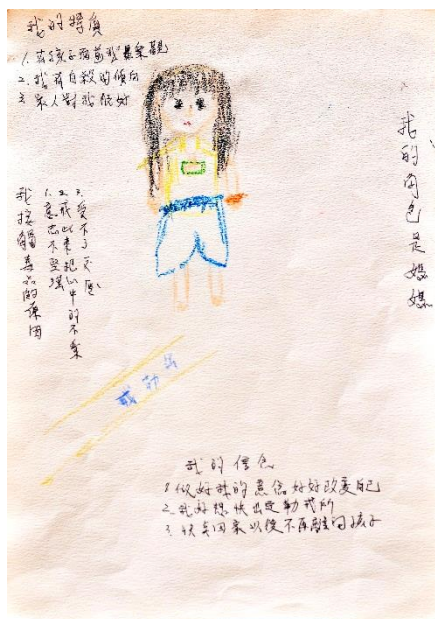 我的特質
1. 在孩子面前我最樂觀
2. 我有自殺的傾向
3. 家人對我很好
我的角色是媽媽
我接觸毒品的原因
1. 意志不堅強
2. 或以來把心中的不樂
3. 受不了
戒勒所
我的信念
1. 做好我的意信好好改變自己
2. 我好想快出這勒戒所
3. 快点回家以後不再離開孩子